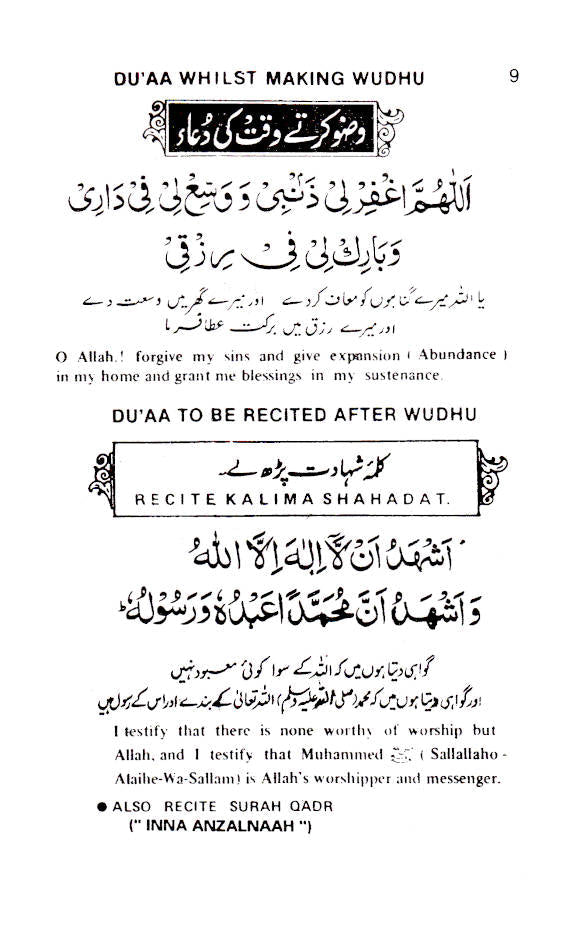 DU'AA WHILST MAKING WUDHU 9
وضو کرتے وقت کی دُعاء
اَللّٰهُمَّ اغْفِرْ لِیْ ذَنْبِیْ وَ وَسِّعْ لِیْ فِیْ دَارِیْ
وَ بَارِكْ لِیْ فِیْ رِزْقِیْ
یا اللہ میرے گناہوں کو معاف کردے اور میرے گھر میں وسعت دے
اور میرے رزق میں برکت عطا فرما
O Allah.! forgive my sins and give expansion ( Abundance )
in my home and grant me blessings in my sustenance.
DU'AA TO BE RECITED AFTER WUDHU
کلمۂ شہادت پڑھ لے۔
RECITE KALIMA SHAHADAT.
اَشْهَدُ اَنْ لَّآ اِلٰهَ اِلَّا اللّٰهُ
وَ اَشْهَدُ اَنَّ مُحَمَّدًا عَبْدُهٗ وَرَسُوْلُهٗ ؕ
گواہی دیتا ہوں میں کہ اللہ کے سوا کوئی معبود نہیں
اور گواہی دیتا ہوں میں کہ محمد (صلی اللہ علیہ وسلم) اللہ تعالیٰ کے بندے اور اس کے رسول ہیں
I testify that there is none worthy of worship but
Allah, and I testify that Muhammed ﷺ ( Sallallaho -
Alaihe-Wa-Sallam) is Allah's worshipper and messenger.
● ALSO RECITE SURAH QADR
(" INNA ANZALNAAH ")